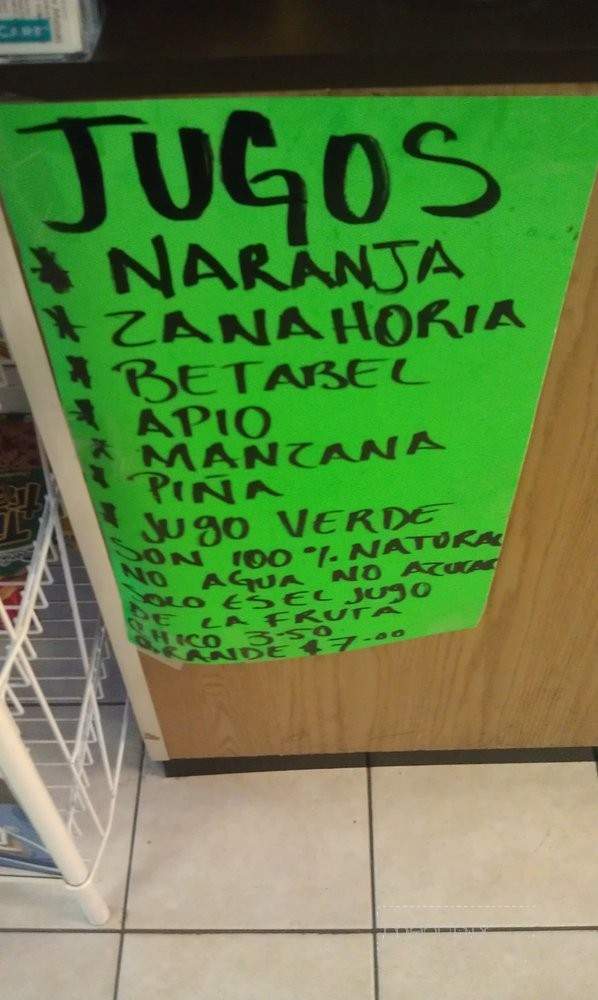 CARE
JUGOS
* NARANJA
* ZANAHORIA
* BETABEL
* APIO
* MANZANA
* PIÑA
* JUGO VERDE
SON 100% NATURAL
NO AGUA NO AZUCAR
SOLO ES EL JUGO
DE LA FRUTA
CHICO 3.50
GRANDE $7.00